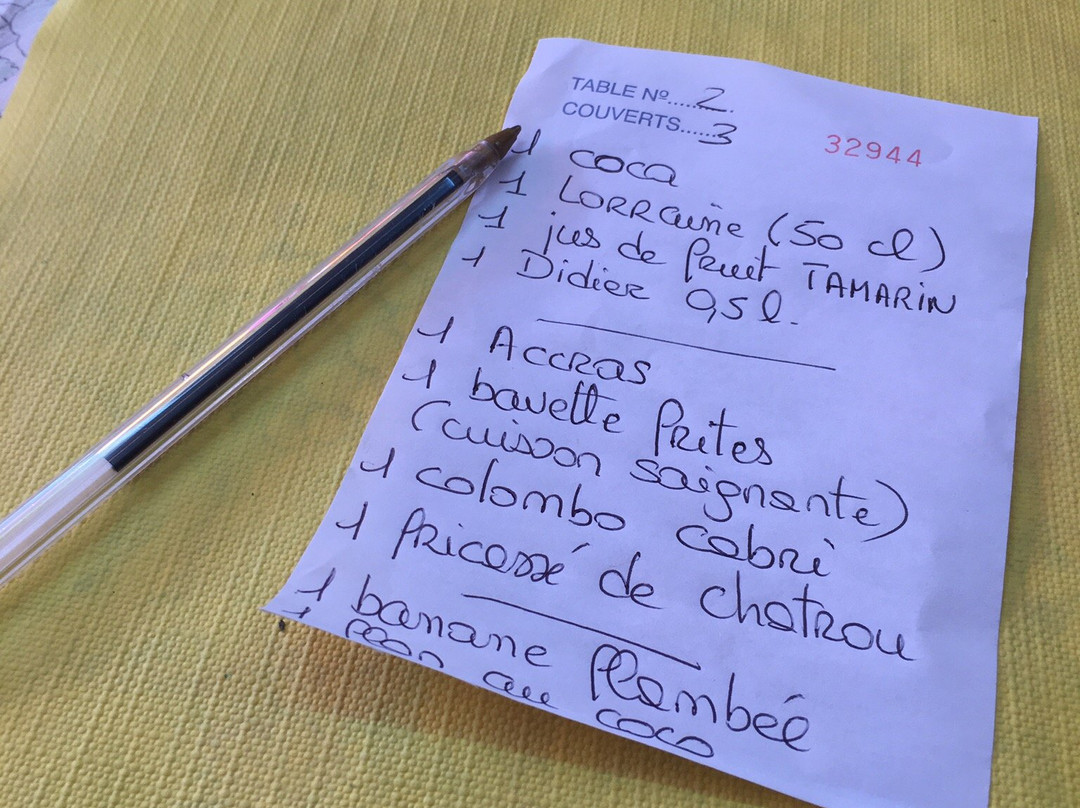 TABLE Nº.....2.
COUVERTS......3
32944
1 coca
1 LORRaine (50 cl)
1 jus de fruit TAMARiN
1 Didier 0,5 l.
1 Accras
1 bavette frites
(cuisson saignante)
1 colombo cabri
1 fricassé de chatrou
1 banane flambée
1 flan au coco